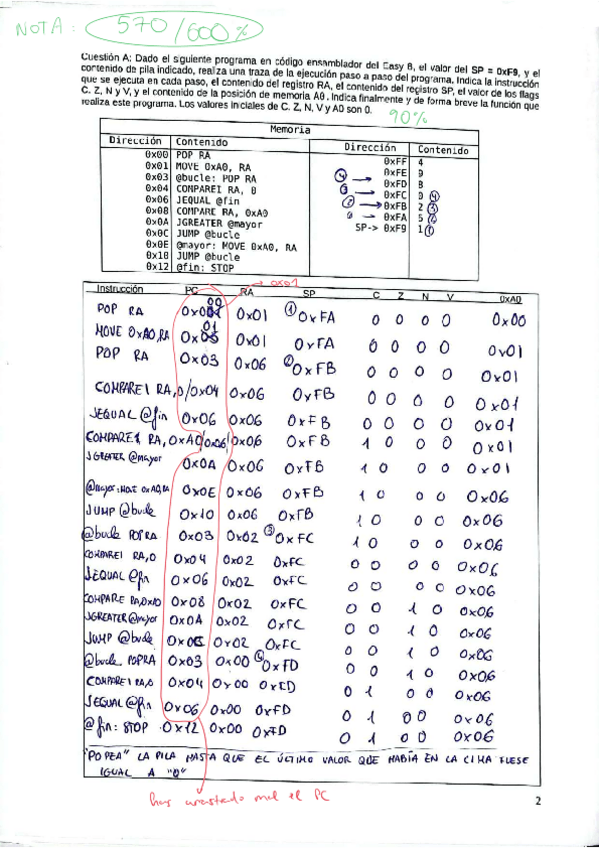 NOTA: 570/600%
Cuestión A: Dado el siguiente programa en código ensamblador del Easy 8, el valor del SP = 0xF9, y el
contenido de pila indicado, realiza una traza de la ejecución paso a paso del programa. Indica la instrucción
que se ejecuta en cada paso, el contenido del registro RA, el contenido del registro SP, el valor de los flags
C, Z, N y V, y el contenido de la posición de memoria A0. Indica finalmente y de forma breve la función que
realiza este programa. Los valores iniciales de C, Z, N, V y A0 son 0.
90%
Memoria
Dirección Contenido Dirección Contenido
0x00 POP RA
0x01 MOVE 0xA0, RA
0x03 @bucle: POP RA
0x04 COMPAREI RA, 0
0x06 JEQUAL @fin
0x08 COMPARE RA, 0xA0
0x0A JGREATER @mayor
0x0C JUMP @bucle
0x0E @mayor: MOVE 0xA0, RA
0x10 JUMP @bucle
0x12 @fin: STOP
0xFF 4
0xFE 9
0xFD 8
0xFC 0 4
0xFB 2 3
0xFA
SP-> 0xF9 1 1
0x01
Instrucción PC RA SP C Z N V 0xA0
POP RA 00 0x01 1 0xFA 0 0 0 0 0x00
MOVE 0xA0,RA 01 0x01 0xFA 0 0 0 0 0x01
POP RA 0x03 0x06 2 0xFB 0 0 0 0 0x01
COMPAREI RA,0 0x04 0x06 0xFB 0 0 0 0 0x01
JEQUAL @fin 0x06 0x06 0xFB 0 0 0 0 0x01
RA, 0xA0 0x06 0xFB 1 0 0 0 0x01
JGREATER @mayor 0x0A 0x06 0xFB 1 0 0 0 0x01
@mayor: 0xA0,RA 0x0E 0x06 0xFB 1 0 0 0 0x06
JUMP @bucle 0x10 0x06 0xFB 1 0 0 0 0x06
@bucle POP RA 0x03 0x02 3 0xFC 1 0 0 0 0x06
COMPAREI RA,0 0x04 0x02 0xFC 0 0 0 0 0x06
JEQUAL @fin 0x06 0x02 0xFC 0 0 0 0 0x06
COMPARE 0x08 0x02 0xFC 0 0 1 0 0x06
JGREATER @mayor 0x0A 0x02 0xFC 0 0 1 0 0x06
JUMP @bucle 0x02 0xFC 0 0 1 0 0x06
@bucle POP RA 0x03 0x00 4 0xFD 0 0 1 0 0x06
COMPAREI RA,0 0x04 0x00 0xFD 0 1 0 0 0x06
JEQUAL @fin 0x06 0x00 0xFD 0 1 0 0 0x06
@fin: STOP 0x12 0x00 0xFD 0 1 0 0 0x06
"POPEA" LA PILA HASTA QUE EL ÚLTIMO VALOR QUE HABÍA EN LA CIMA FUESE
IGUAL A "0"
has arrastado mal el PC
2